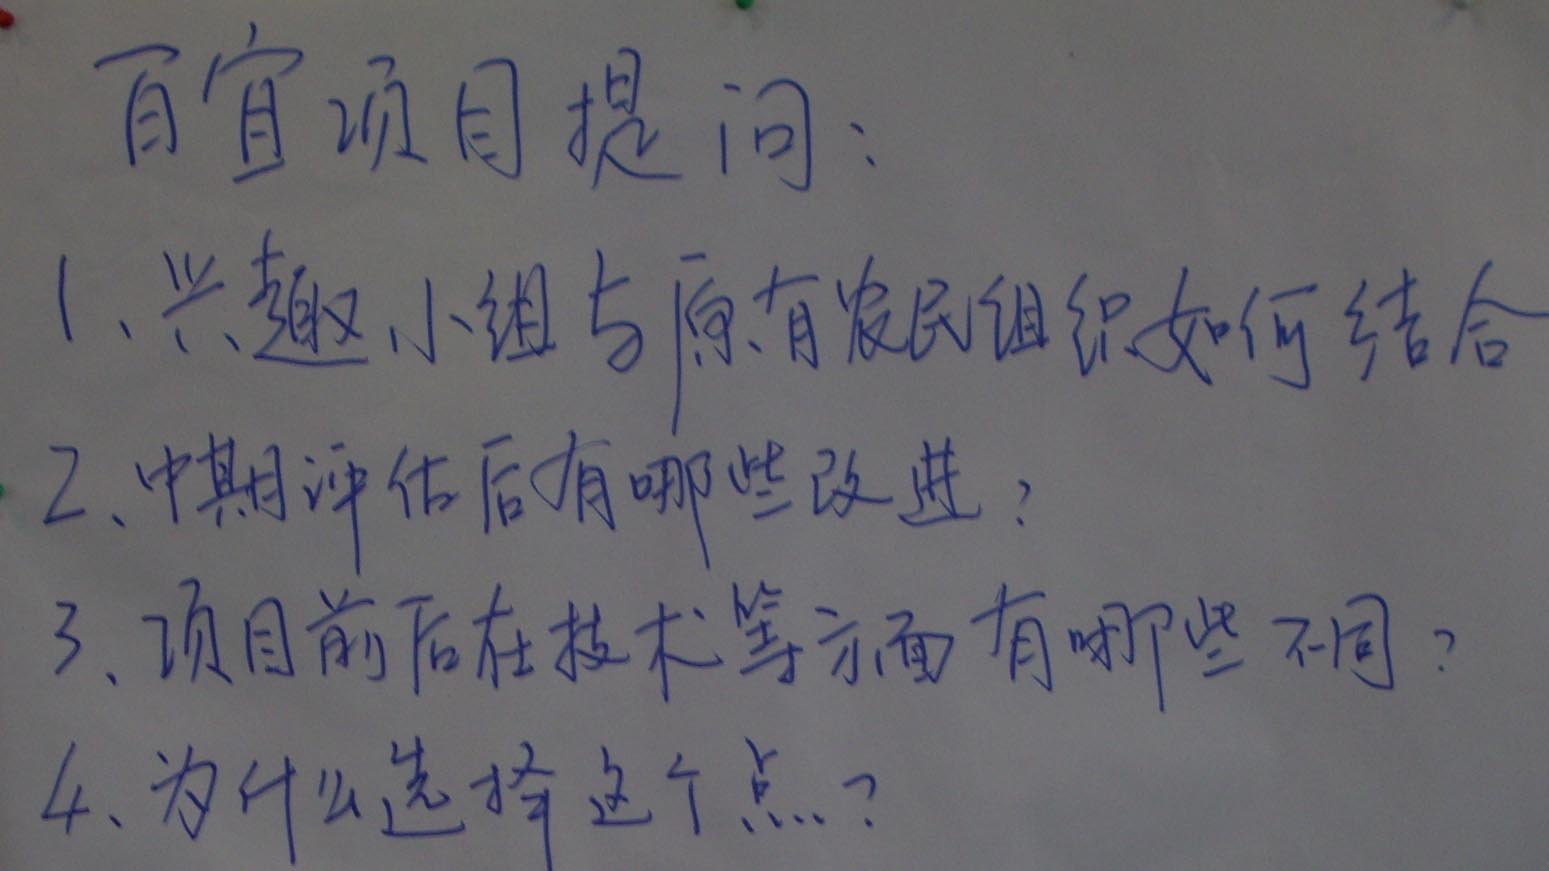 百宜项目提问：
1、兴趣小组与原有农民组织如何结合
2、中期评估后有哪些改进？
3、项目前后在技术等方面有哪些不同？
4、为什么选择这个点？